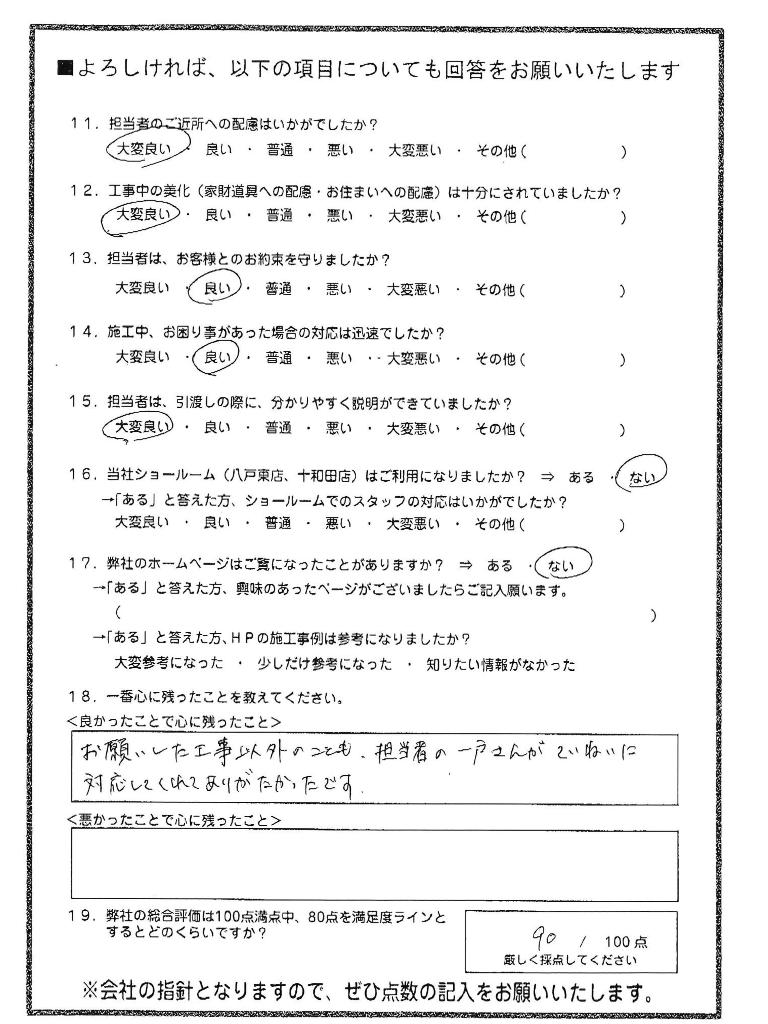 ■よろしければ、以下の項目についても回答をお願いいたします
11. 担当者のご近所への配慮はいかがでしたか？
大変良い ・ 良い ・ 普通 ・ 悪い ・ 大変悪い ・ その他（ ）
12. 工事中の美化（家財道具への配慮・お住まいへの配慮）は十分にされていましたか？
大変良い ・ 良い ・ 普通 ・ 悪い ・ 大変悪い ・ その他（ ）
13. 担当者は、お客様とのお約束を守りましたか？
大変良い ・ 良い ・ 普通 ・ 悪い ・ 大変悪い ・ その他（ ）
14. 施工中、お困り事があった場合の対応は迅速でしたか？
大変良い ・ 良い ・ 普通 ・ 悪い ・・ 大変悪い ・ その他（ ）
15. 担当者は、引渡しの際に、分かりやすく説明ができていましたか？
大変良い ・ 良い ・ 普通 ・ 悪い ・ 大変悪い ・ その他（ ）
16. 当社ショールーム（八戸東店、十和田店）はご利用になりましたか？ ⇒ ある ・ ない
→「ある」と答えた方、ショールームでのスタッフの対応はいかがでしたか？
大変良い ・ 良い ・ 普通 ・ 悪い ・ 大変悪い ・ その他（ ）
17. 弊社のホームページはご覧になったことがありますか？ ⇒ ある ・ ない
→「ある」と答えた方、興味のあったページがございましたらご記入願います。
（ ）
→「ある」と答えた方、HPの施工事例は参考になりましたか？
大変参考になった ・ 少しだけ参考になった ・ 知りたい情報がなかった
18. 一番心に残ったことを教えてください。
＜良かったことで心に残ったこと＞
お願いした工事以外のことも、担当者の一戸さんがていねいに
対応してくれてありがたかったです.
＜悪かったことで心に残ったこと＞
19. 弊社の総合評価は100点満点中、80点を満足度ラインと
するとどのくらいですか？
90 / 100点
厳しく採点してください
※会社の指針となりますので、ぜひ点数の記入をお願いいたします。